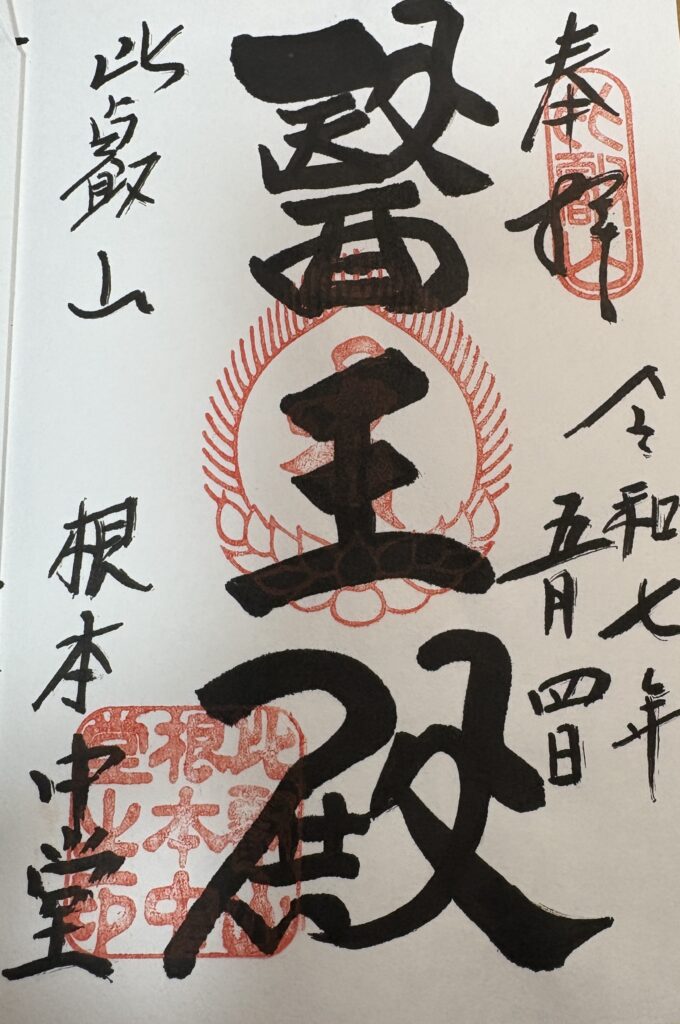 奉拝
令和七年
五月四日
醫王殿
比叡山 根本中堂
比叡山
比叡山
根本中
堂之印